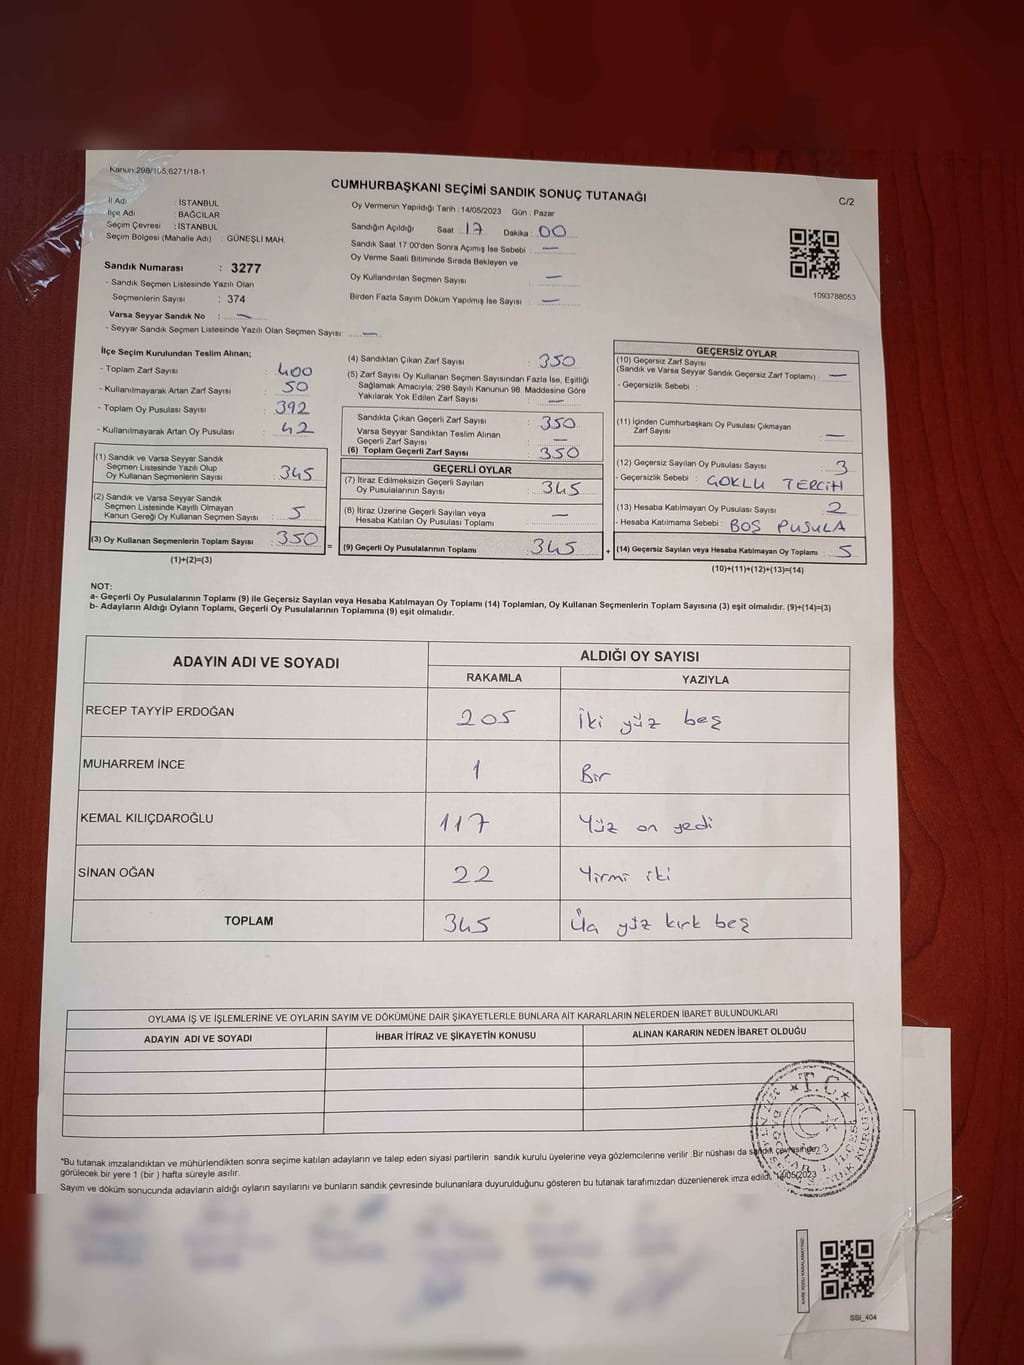 Kanun:298/105,6271/18-1
CUMHURBAŞKANI SEÇİMİ SANDIK SONUÇ TUTANAĞI
C/2
İl Adı : İSTANBUL
İlçe Adı : BAĞCILAR
Seçim Çevresi : İSTANBUL
Seçim Bölgesi (Mahalle Adı) : GÜNEŞLİ MAH.
Sandık Numarası : 3277
- Sandık Seçmen Listesinde Yazılı Olan
Seçmenlerin Sayısı : 374
Varsa Seyyar Sandık No : —
- Seyyar Sandık Seçmen Listesinde Yazılı Olan Seçmen Sayısı: —
Oy Vermenin Yapıldığı Tarih : 14/05/2023 Gün : Pazar
Sandığın Açıldığı Saat : 17 Dakika : 00
Sandık Saat 17:00'den Sonra Açımış İse Sebebi : —
Oy Verme Saati Bitiminde Sırada Bekleyen ve
Oy Kullandırılan Seçmen Sayısı —
Birden Fazla Sayım Döküm Yapılmış İse Sayısı : —
1093788053
İlçe Seçim Kurulundan Teslim Alınan;
- Toplam Zarf Sayısı : 400
- Kullanılmayarak Artan Zarf Sayısı : 50
- Toplam Oy Pusulası Sayısı : 392
- Kullanılmayarak Artan Oy Pusulası : 42
(1) Sandık ve Varsa Seyyar Sandık
Seçmen Listesinde Yazılı Olup
Oy Kullanan Seçmenlerin Sayısı : 345
(2) Sandık ve Varsa Seyyar Sandık
Seçmen Listesinde Kayıtlı Olmayan
Kanun Gereği Oy Kullanan Seçmen Sayısı : 5
(3) Oy Kullanan Seçmenlerin Toplam Sayısı : 350
(1)+(2)=(3)
=
(4) Sandıktan Çıkan Zarf Sayısı : 350
(5) Zarf Sayısı Oy Kullanan Seçmen Sayısından Fazla İse, Eşitliği
Sağlamak Amacıyla; 298 Sayılı Kanunun 98. Maddesine Göre
Yakılarak Yok Edilen Zarf Sayısı : —
Sandıkta Çıkan Geçerli Zarf Sayısı : 350
Varsa Seyyar Sandıktan Teslim Alınan
Geçerli Zarf Sayısı : —
(6) Toplam Geçerli Zarf Sayısı : 350
GEÇERLİ OYLAR
(7) İtiraz Edilmeksizin Geçerli Sayılan
Oy Pusulalarının Sayısı : 345
(8) İtiraz Üzerine Geçerli Sayılan veya
Hesaba Katılan Oy Pusulası Toplamı : —
(9) Geçerli Oy Pusulalarının Toplamı : 345
+
GEÇERSİZ OYLAR
(10) Geçersiz Zarf Sayısı
(Sandık ve Varsa Seyyar Sandık Geçersiz Zarf Toplamı) : —
- Geçersizlik Sebebi :
(11) İçinden Cumhurbaşkanı Oy Pusulası Çıkmayan
Zarf Sayısı : —
(12) Geçersiz Sayılan Oy Pusulası Sayısı : 3
- Geçersizlik Sebebi : ÇOKLU TERCİH
(13) Hesaba Katılmayan Oy Pusulası Sayısı : 2
- Hesaba Katılmama Sebebi : BOŞ PUSULA
(14) Geçersiz Sayılan veya Hesaba Katılmayan Oy Toplamı : 5
(10)+(11)+(12)+(13)=(14)
NOT:
a- Geçerli Oy Pusulalarının Toplamı (9) ile Geçersiz Sayılan veya Hesaba Katılmayan Oy Toplamı (14) Toplamları, Oy Kullanan Seçmenlerin Toplam Sayısına (3) eşit olmalıdır. (9)+(14)=(3)
b- Adayların Aldığı Oyların Toplamı, Geçerli Oy Pusulalarının Toplamına (9) eşit olmalıdır.
ADAYIN ADI VE SOYADI
ALDIĞI OY SAYISI
RAKAMLA YAZIYLA
RECEP TAYYİP ERDOĞAN 205 İki yüz beş
MUHARREM İNCE 1 Bir
KEMAL KILIÇDAROĞLU 117 Yüz on yedi
SİNAN OĞAN 22 Yirmi iki
TOPLAM 345 Üç yüz kırk beş
OYLAMA İŞ VE İŞLEMLERİNE VE OYLARIN SAYIM VE DÖKÜMÜNE DAİR ŞİKAYETLERLE BUNLARA AİT KARARLARIN NELERDEN İBARET BULUNDUKLARI
ADAYIN ADI VE SOYADI İHBAR İTİRAZ VE ŞİKAYETİN KONUSU ALINAN KARARIN NEDEN İBARET OLDUĞU
T.C.
*Bu tutanak imzalandıktan ve mühürlendikten sonra seçime katılan adayların ve talep eden siyasi partilerin sandık kurulu üyelerine veya gözlemcilerine verilir .Bir nüshası da sandık çevresinde
görülecek bir yere 1 (bir ) hafta süreyle asılır.
Sayım ve döküm sonucunda adayların aldığı oyların sayılarını ve bunların sandık çevresinde bulunanlara duyurulduğunu gösteren bu tutanak tarafımızdan düzenlenerek imza edildi. 14/05/2023
SSI_404